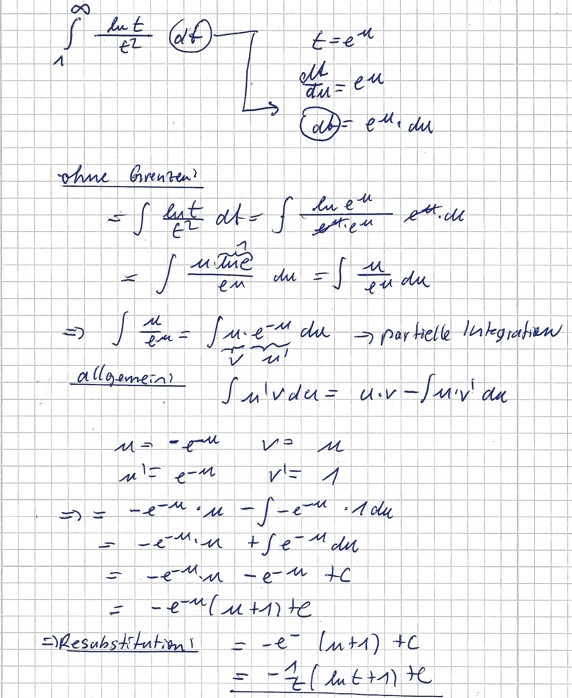 ∫₁^∞ ln t / t² dt
t = e^u
dt/du = e^u
dt = e^u · du
ohne Grenzen:
= ∫ ln t / t² dt = ∫ ln e^u / e^u · e^u e^u · du
= ∫ u · ln e / e^u du = ∫ u / e^u du
=> ∫ u / e^u = ∫ u · e^-u du → partielle Integration
v u'
allgemein:
∫ u'v du = u · v - ∫ u · v' du
u = -e^-u v = u
u' = e^-u v' = 1
=> = -e^-u · u - ∫ -e^-u · 1 du
= -e^-u · u + ∫ e^-u du
= -e^-u · u - e^-u + c
= -e^-u (u+1) + c
=> Resubstitution: = -e^- (u+1) + c
= -1/t (ln t + 1) + c